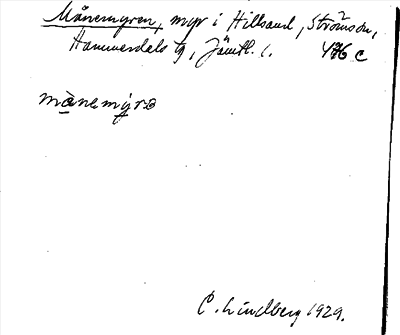 Månemyren, myr i Hillsand, Ströms sn,
Hammerdals tg, Jämtl. l. 476 c
månemyrɷ
C. Lindberg 1929.